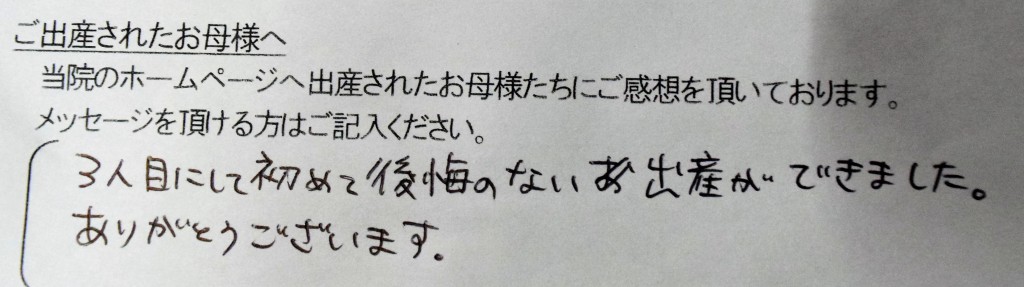 ご出産されたお母様へ
当院のホームページへ出産されたお母様たちにご感想を頂いております。
メッセージを頂ける方はご記入ください。
3人目にして初めて後悔のないお出産ができました。
ありがとうございます。